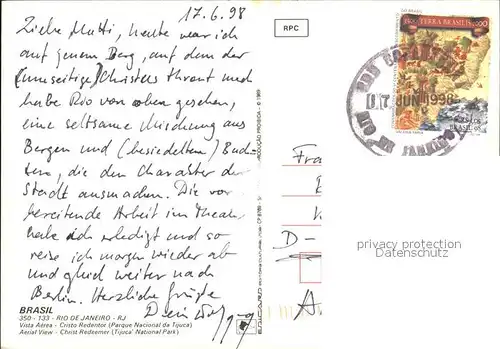 17.6.98
Liebe Mutti, heute war ich
auf jenem Berg, auf dem der
(umseitige) Christus thront und
habe Rio von oben gesehen,
eine seltsame Mischung aus
Bergen und (besiedelten) Buch-
ten, die den Charakter der
Stadt ausmachen. Die vor-
bereitende Arbeit im Theater
habe ich erledigt und so
reise ich morgen wieder ab
und gleich weiter nach
Berlin. Herzliche Grüße
Dein
BRASIL
350 - 133 - RIO DE JANEIRO - RJ
Vista Aérea - Cristo Redentor (Parque Nacional da Tijuca)
Aerial View - Christ Redeemer (Tijuca' National Park)
RPC
TERRA BRASILIS
17 JUN 1998
RIO DE JANEIRO
BRASIL
D-
privacy protection
Datenschutz